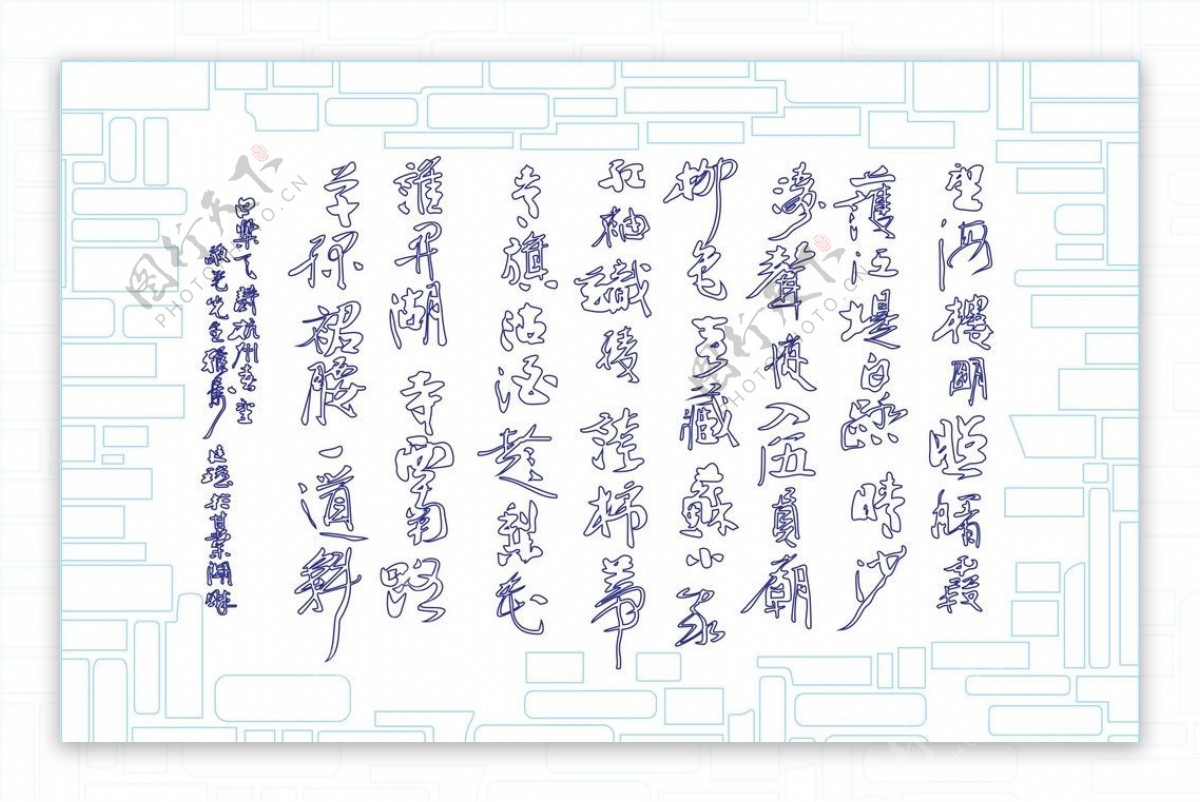 望海樓明照曙霞
護江堤白蹋晴沙
濤聲夜入伍員廟
柳色春藏蘇小家
紅袖織綾誇柿蒂
青旗沽酒趁梨花
誰開湖寺西南路
草綠裙腰一道斜
白樂天詩杭州春望
先生雅屬 於甘棠湖畔
图行天下
PHOTOPHOTO.CN
图行天下
PHOTOPHOTO.CN